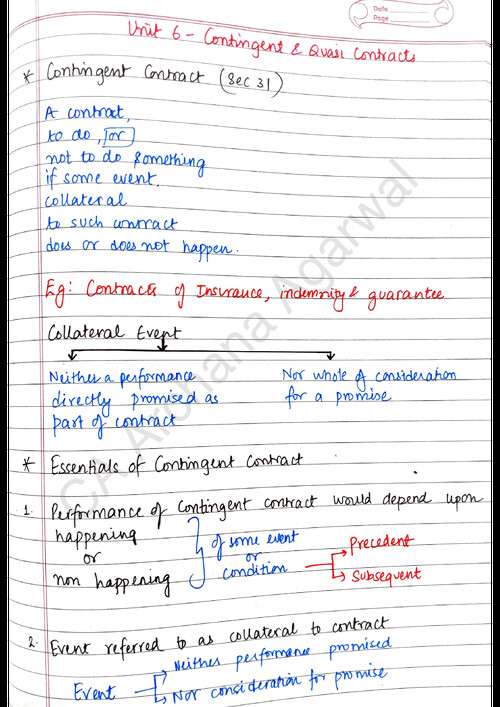 Date
Page
Unit 6 - Contingent & Quasi Contracts
* Contingent Contract (Sec 31)
A contract,
to do, or
not to do something
if some event.
collateral
to such contract
does or does not happen.
Eg: Contracts of Insurance, indemnity & guarantee
Collateral Event
Neither a performance
directly promised as
part of contract
Nor whole of consideration
for a promise
* Essentials of Contingent Contract
1. Performance of Contingent contract would depend upon
happening
or
non happening
of some event
or
condition
Precedent
Subsequent
2. Event referred to as collateral to contract
Event
Neither performance promised
Nor consideration for promise
CA Archana Agarwal